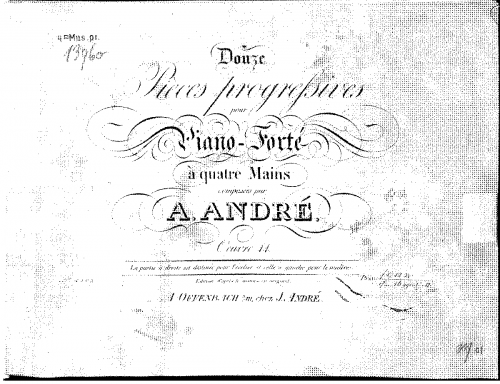 4° Mus. pr.
13960
Douze
Pièces progressives
pour
Piano-Forté
à quatre Mains
composées par
A. ANDRÉ,
Oeuvre 44.
La partie à droite est destinée pour l'écolier et celle à gauche pour le maître.
A OFFENBACH s/m, chez J. ANDRÉ.